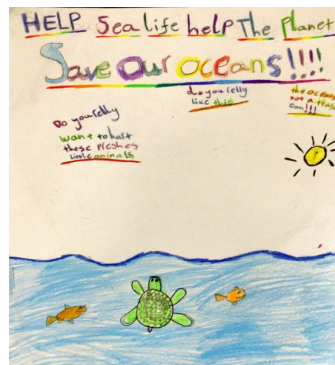 HELP Sea life help The Planet
Save Our oceans!!!!
Do you relly
want to hurt
these preshes
little animals
do you relly
like this
the oceans
not a trash
can!!!